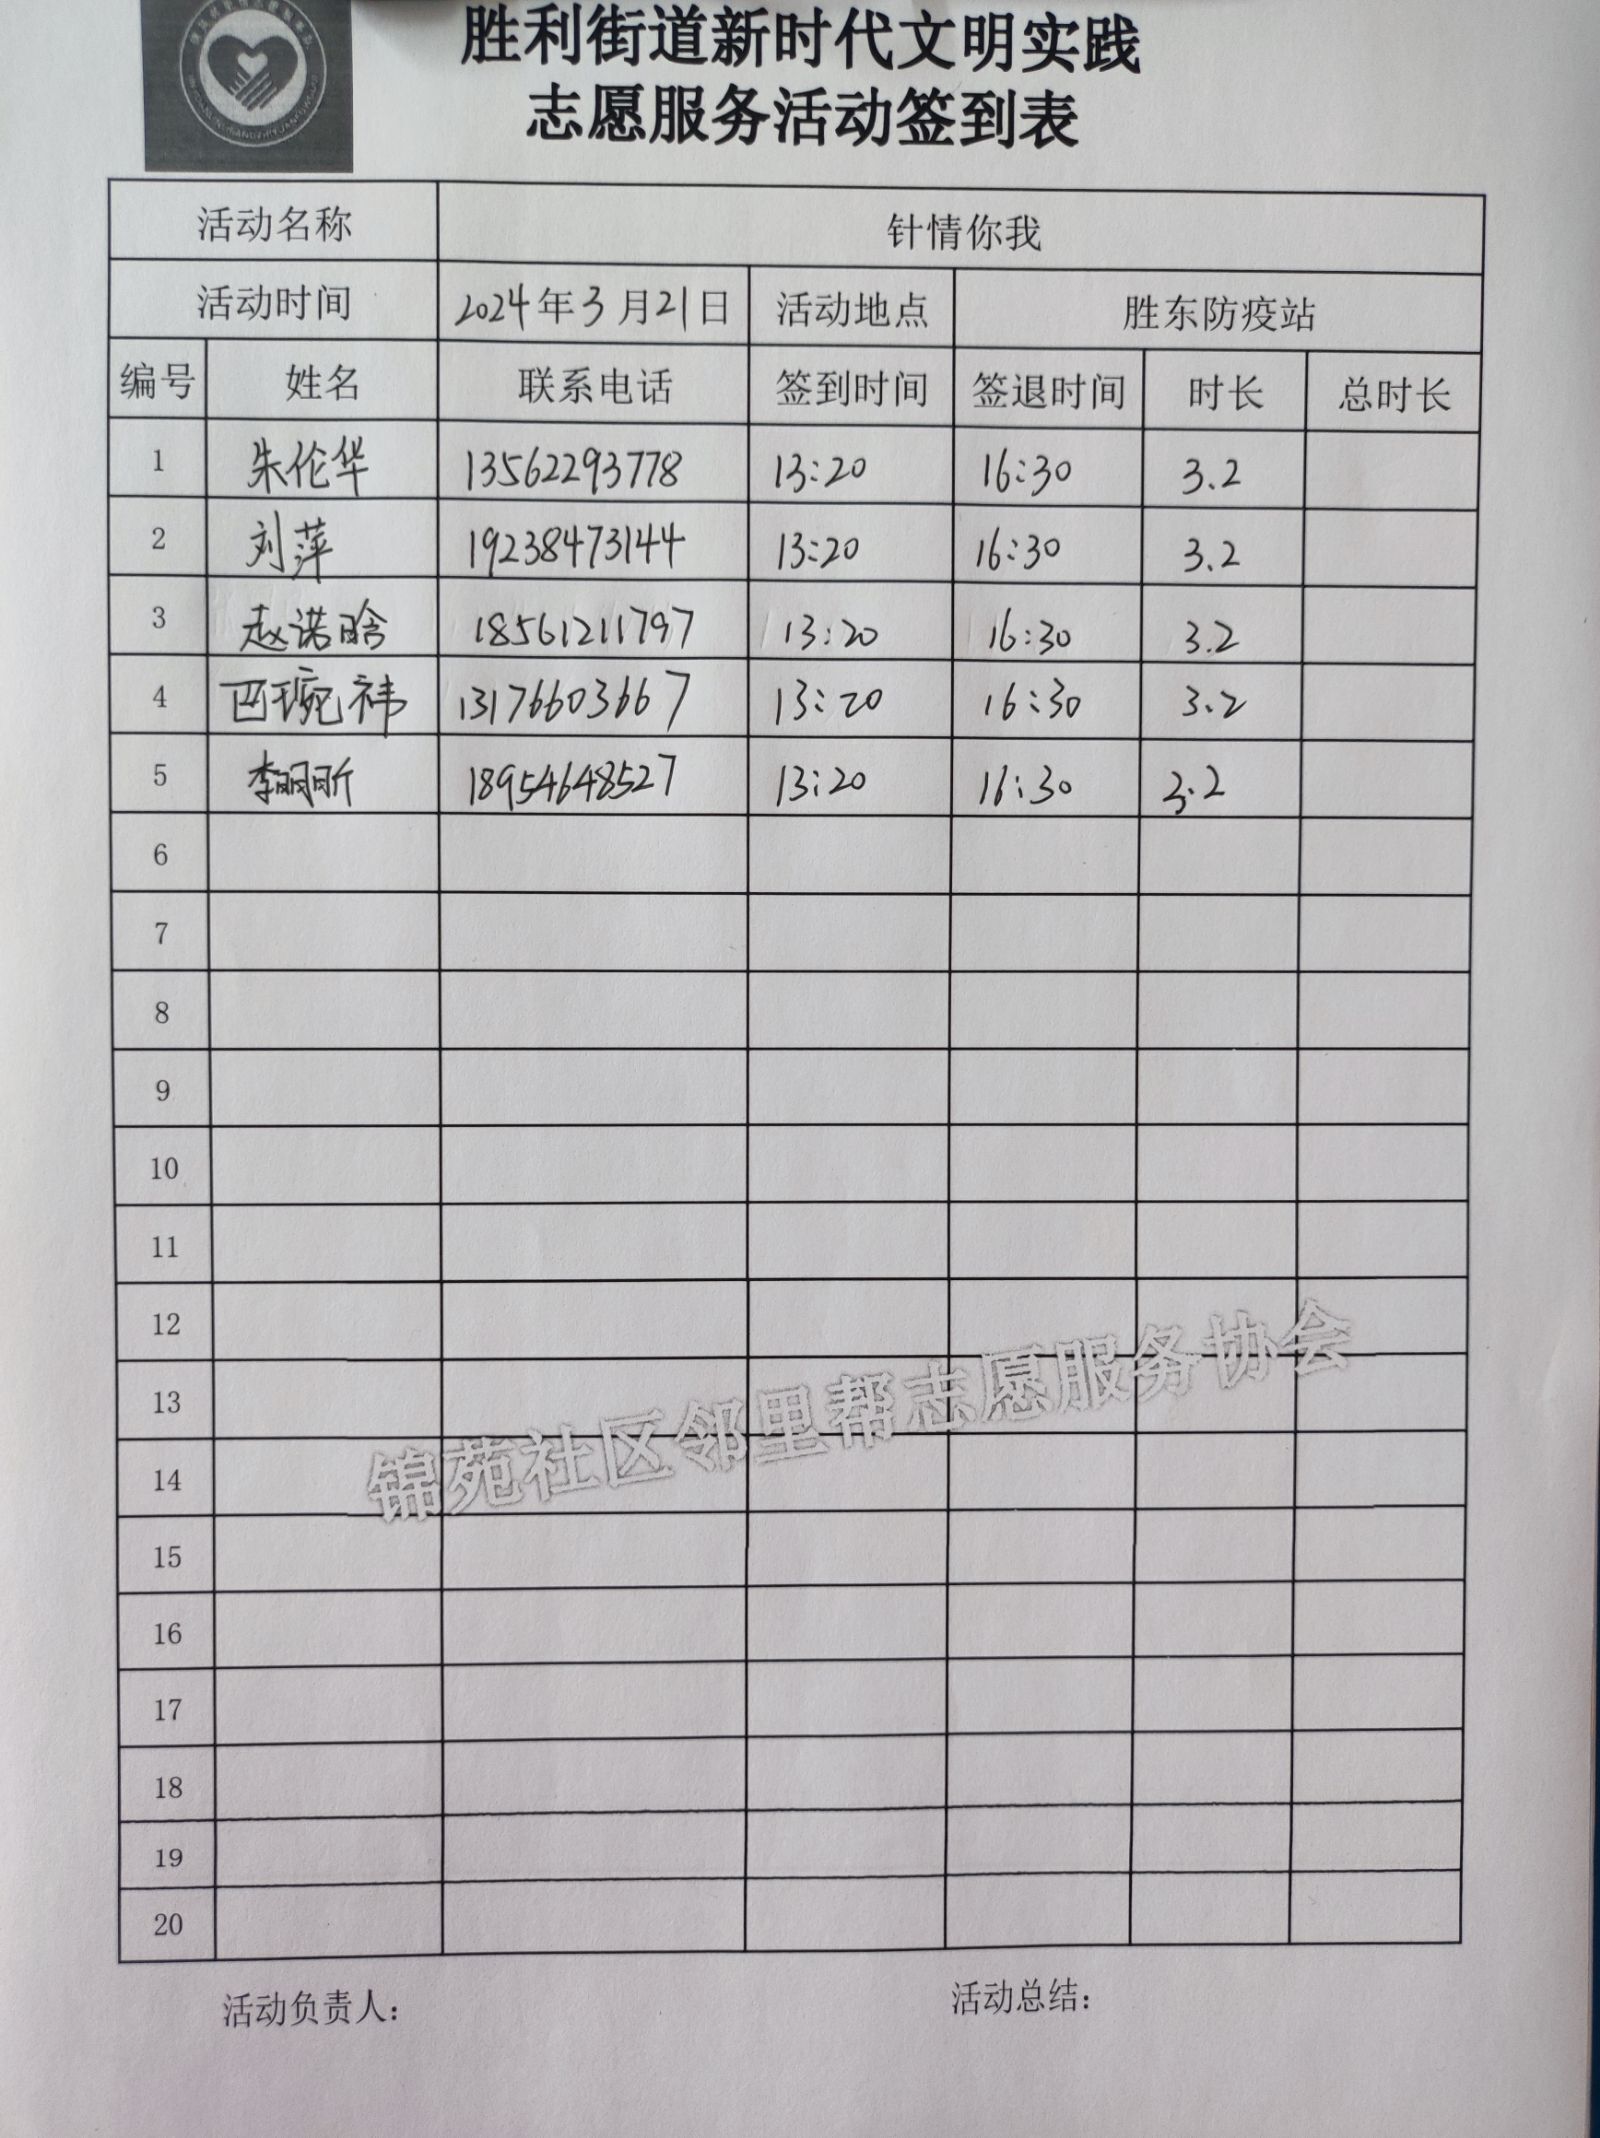 胜利街道新时代文明实践
志愿服务活动签到表
活动名称 针情你我
活动时间 2024年3月21日 活动地点 胜东防疫站
编号 姓名 联系电话 签到时间 签退时间 时长 总时长
1 朱伦华 13562293778 13:20 16:30 3.2
2 刘萍 19238473144 13:20 16:30 3.2
3 赵诺晗 18561211797 13:20 16:30 3.2
4 巴琬祎 13176603667 13:20 16:30 3.2
5 李明昕 18954648527 13:20 16:30 3.2
6
7
8
9
10
11
12
13
锦苑社区邻里帮志愿服务协会
14
15
16
17
18
19
20
活动负责人： 活动总结：